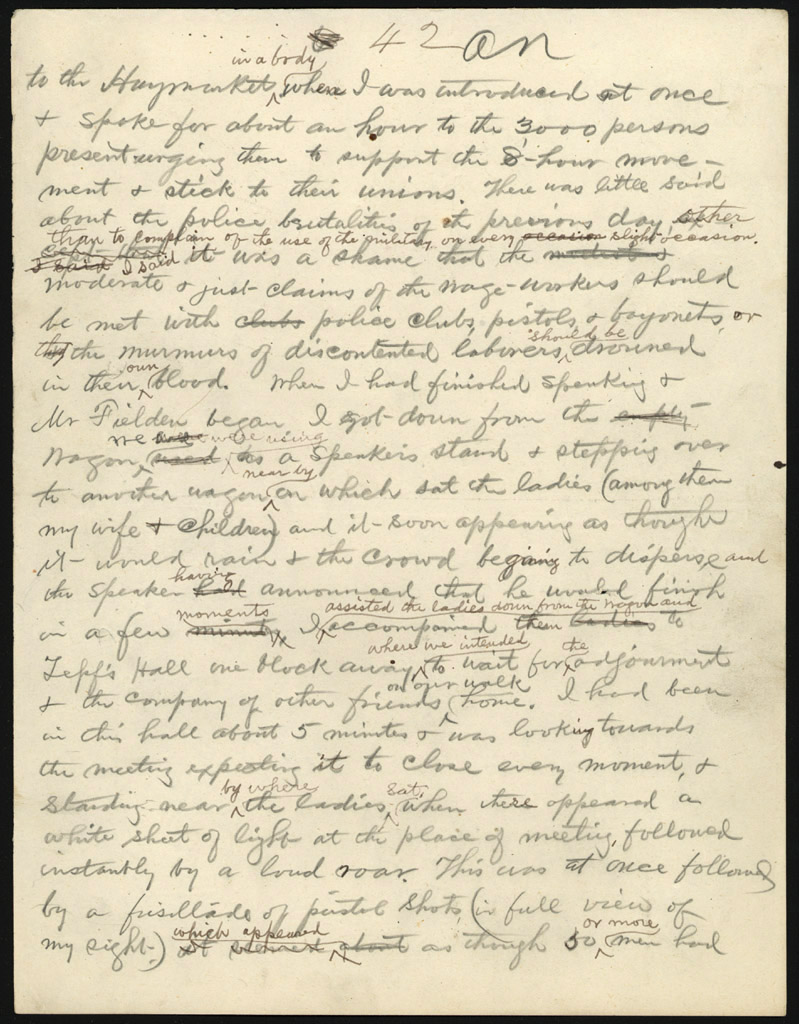 42 an
in a body
to the Haymarket, where I was introduced at once
& spoke for about an hour to the 3000 persons
present urging them to support the 8-hour move-
ment & stick to their unions. There was little said
about the police brutalities of the previous day other
than to complain of the use of the military on every occasion slight occasion.
I said I said it was a shame that the modest &
moderate & just claims of the wage-workers should
be met with clubs police clubs, pistols & bayonets, or
the murmurs of discontented laborers should be drowned
in their own blood. When I had finished speaking &
Mr Fielden began I got down from the empty
we were using
wagon used as a speakers stand & stepping over
near by
to another wagon on which sat the ladies (among them
my wife & children) and it soon appearing as though
it would rain & the crowd beginning to disperse and
having
the speaker had announced that he would finish
moments assisted the ladies down from the wagon and
in a few minutes I accompanied them ladies to
where we intended the
Zepf's Hall one block away to wait for adjournment
on our walk
& the company of other friends home. I had been
in this hall about 5 minutes & was looking towards
the meeting expecting it to close every moment, &
by where sat,
standing near the ladies when there appeared a
white sheet of light at the place of meeting, followed
instantly by a loud roar. This was at once followed
by a fusillade of pistol shots (in full view of
which appeared or more
my sight) it seemed about as though 50 men had